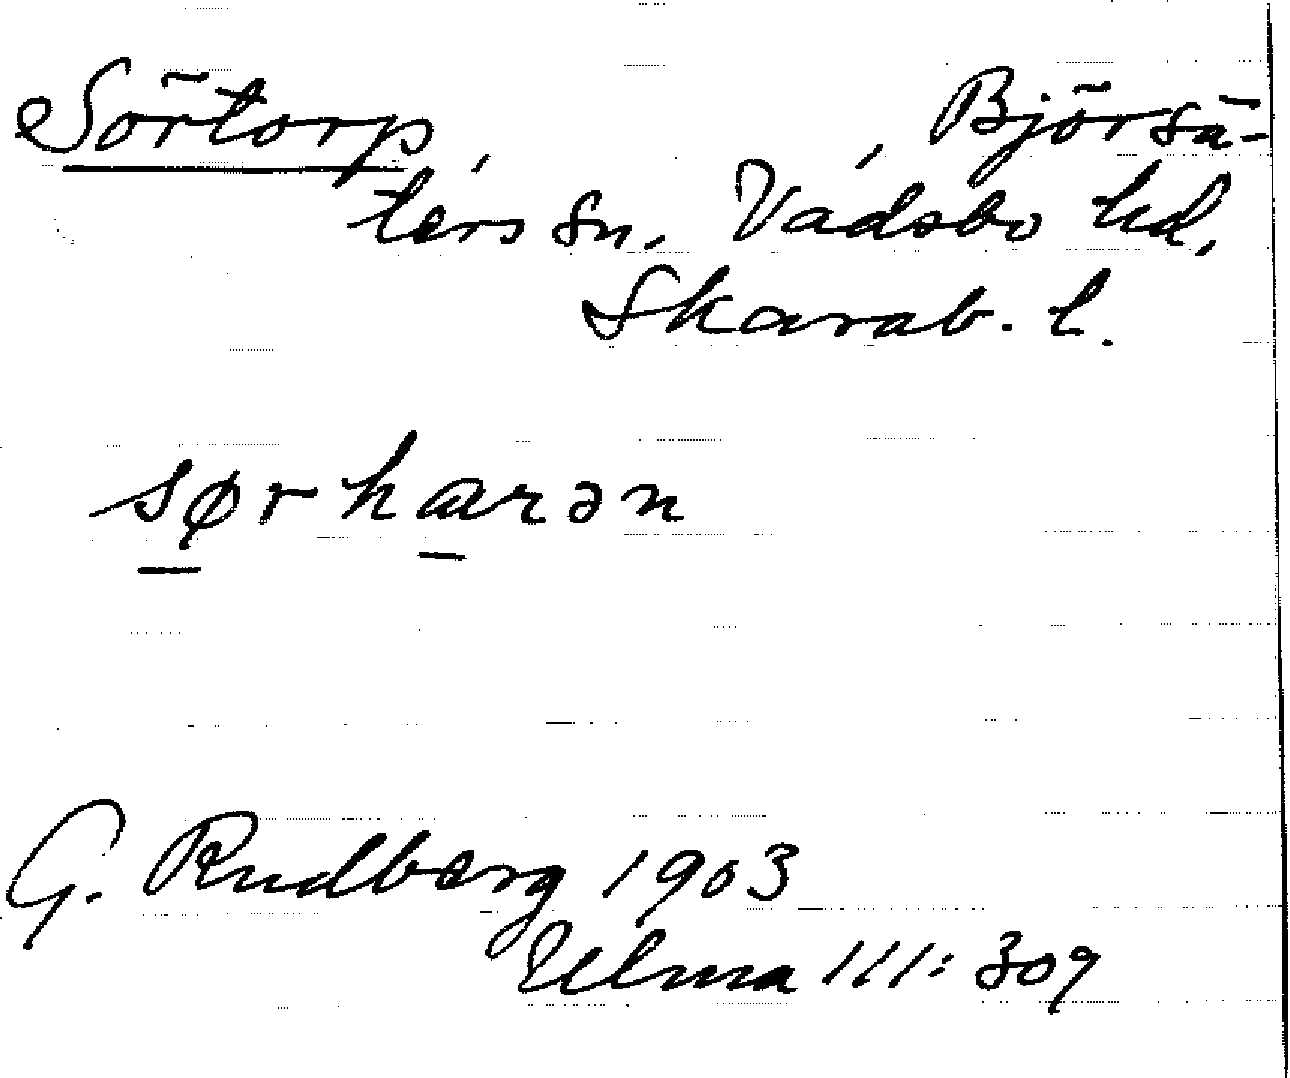 Sörtorp, , Björsä-
ters sn, Vadsbo hd,
Skarab. l.
sørharən
G. Rudberg 1903
Ulma 111:309